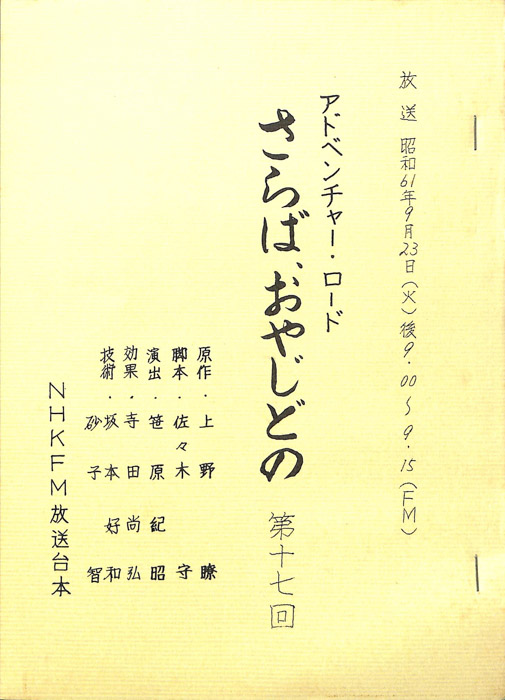 放送 昭和61年9月23日(火)後9.00〜9.15(FM)
アドベンチャー・ロード
さらば、おやじどの
第十七回
原作・上野 瞭
脚本・佐々木 守
演出・笹原紀昭
効果・寺田尚弘
技術・坂本好和
砂子 智
NHKFM放送台本